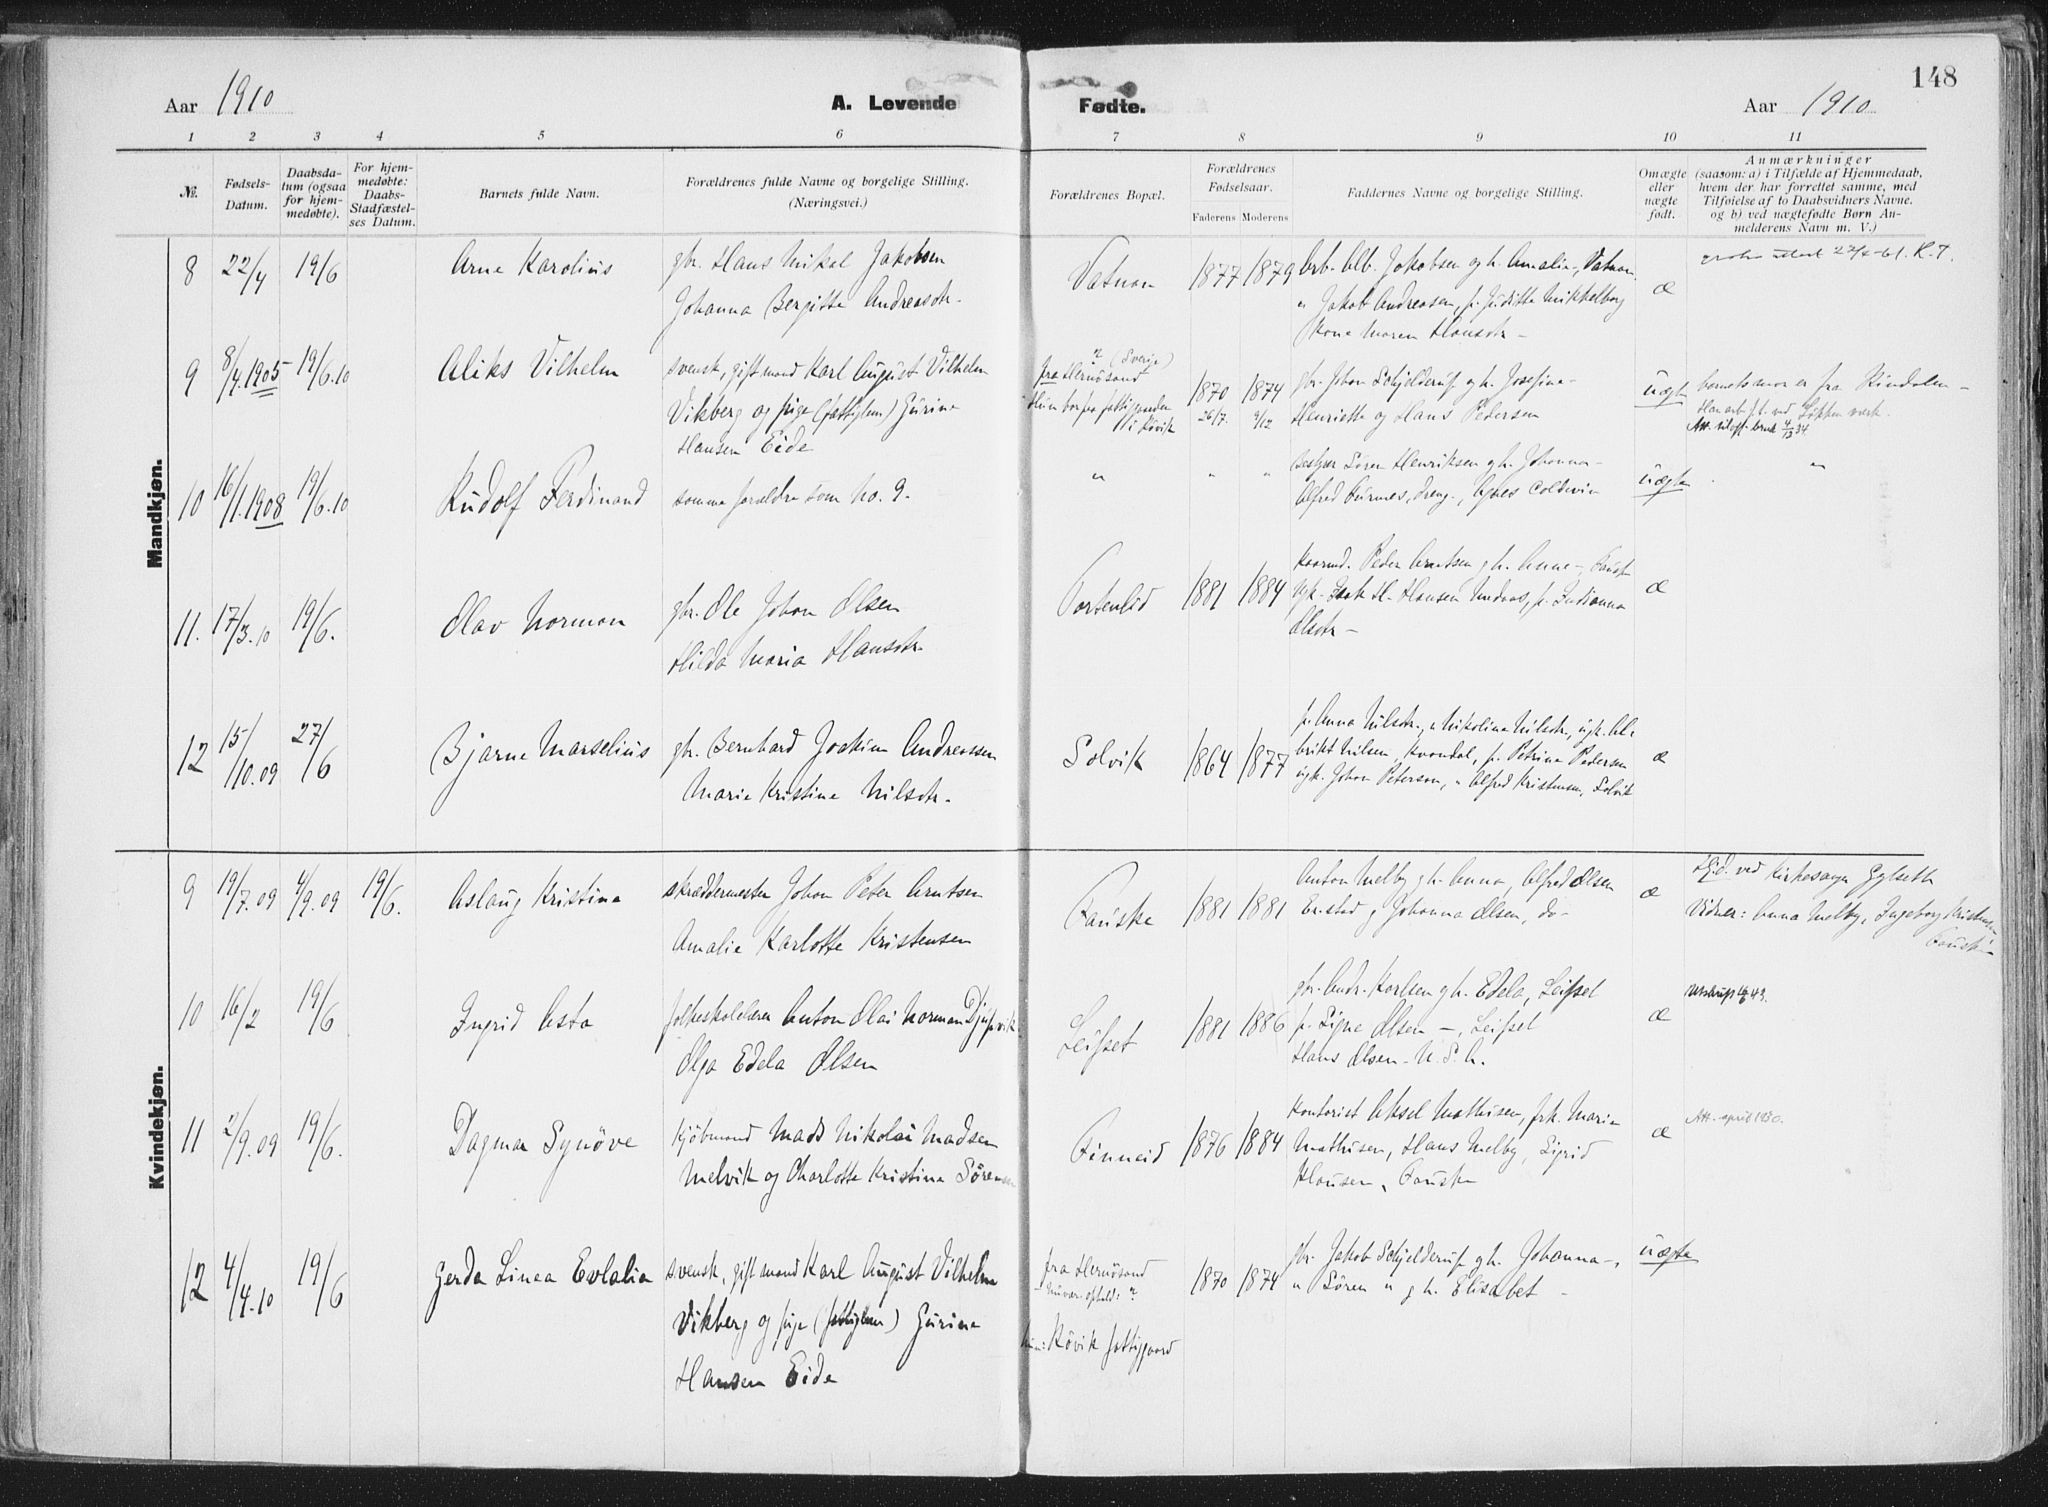 148
Aar 1910
A. Levende Fødte.
Aar 1910
1 2 3 4 5 6 7 8 9 10 11
№.
Fødsels-
Datum.
Daabsda-
tum (ogsaa
for hjem-
medøbte).
For hjem-
medøbte:
Daabs-
Stadfæstel-
ses Datum.
Barnets fulde Navn.
Forældrenes fulde Navne og borgelige Stilling.
(Næringsvei.)
Forældrenes Bopæl.
Forældrenes
Fødselsaar.
Faderens Moderens
Faddernes Navne og borgelige Stilling.
Omægte
eller
nægte
født.
Anmærkninger
(saasom: a) i Tilfælde af Hjemmedaab,
hvem der har forrettet samme, med
Tilføielse af to Daabsvidners Navne.
og b) ved nægtefødte Børn An-
melderens Navn m. V.)
Mandkjøn.
8 22/4 19/6 Arne Karolius
gbr. Hans Mikal Jakobsen
Johanna Bergitte Andreasdtr.
Vatnan 1877 1879
Arb. Alb. Jakobsen og h. Amalie, Vatnan
" Jakob Andreasen, p. Juditte Mikkelborg
Kone Maren Hansdtr -
æ
27/4-61. R.T.
9 8/4.1905 19/6.10 Aliks Vilhelm
svensk, gift mand Karl August Vilhelm
Vikberg og pige (fattiglem) Gurine
Hansen Eide
? (Sverige)
fra Hernøsand
Hun bor paa fattiggaarden
i Røvik
1870 26/7. 1874 9/12
gbr. Johan Schjelderup og h. Josefine -
Henriette og Hans Pedersen
uægte
barnets mor er fra Rindalen -
Han arb. p.t. ved Løkken værk.
10 16/1.1908 19/6.10 Rudolf Ferdinand
samme forældre som no. 9.
" " "
Søren Henriksen og h. Johanna -
Alfred Furnes, dreng, Agnes Coldevin
uægte "
11. 17/3.10 19/6. Olav Norman
gbr. Ole Johan Olsen
Hilda Maria Hansdtr.
Tortenlid 1881 1884
Peder Arntsen og h. Anne - Fauske
Isak H. Hansen p. Indianna
Olsdtr -
æ
12 15/10.09 27/6 Bjarne Marselius
gbr. Bernhard Joakim Andreassen
Marie Kristine Nilsdtr.
Solvik 1864 1877
p. Anna Nilsdtr., " Nikoline Nilsdtr., ugk. Al-
brikt Nilsen, Kvandal, p. Petrine Pedersen
ugk. Johan Peterson, " Alfred Kristensen, Solvik
æ
Kvindekjøn.
9 19/7.09 4/9.09 19/6. Aslaug Kristine
skræddermester Johan Peter Arntsen
Amalie Karlotte Kristensen
Fauske 1881 1881
Anton Melby og h. Anna, Alfred Olsen
Erstad og Johanna Olsen, do -
æ
Hjd. ved Kirkesanger Gylseth
Vidner: Anna Melby, Ingeborg Kristensen
Fauske
10 16/2 19/6 Ingrid Asta
folkeskolelærer Anton Olai Norman Djupvik
Olga Edela Olsen
Leifset 1881 1886
gbr. Andr. Karlsen og h. Edela, Leifset
p. Signe Olsen -, Leifset
Hans Olsen - N. S. A.
æ
11 2/9.09 19/6. Dagmar Synöve
Kjöbmand Mads Nikolai Madsen
Melvik og Charlotte Kristine Sörensen
Finneid 1876 1884
Kontorist Aksel Mathisen, frk. Marie
Mathisen, Hans Melby, Sigrid
Hansen, Fauske
æ
Att. april 1930.
12 4/4.10 19/6 Gerda Linea Evlalia
svensk, gift mand Karl August Vilhelm
Vikberg og pige (fattiglem) Gurine
Hansen Eide
fra Hernösand
nuvær. ophold: ?
Røvik fattiggaard
1870 1874
gbr. Jakob Schjelderup og h. Johanna -,
" Sören " og h. Elisabet -
uægte